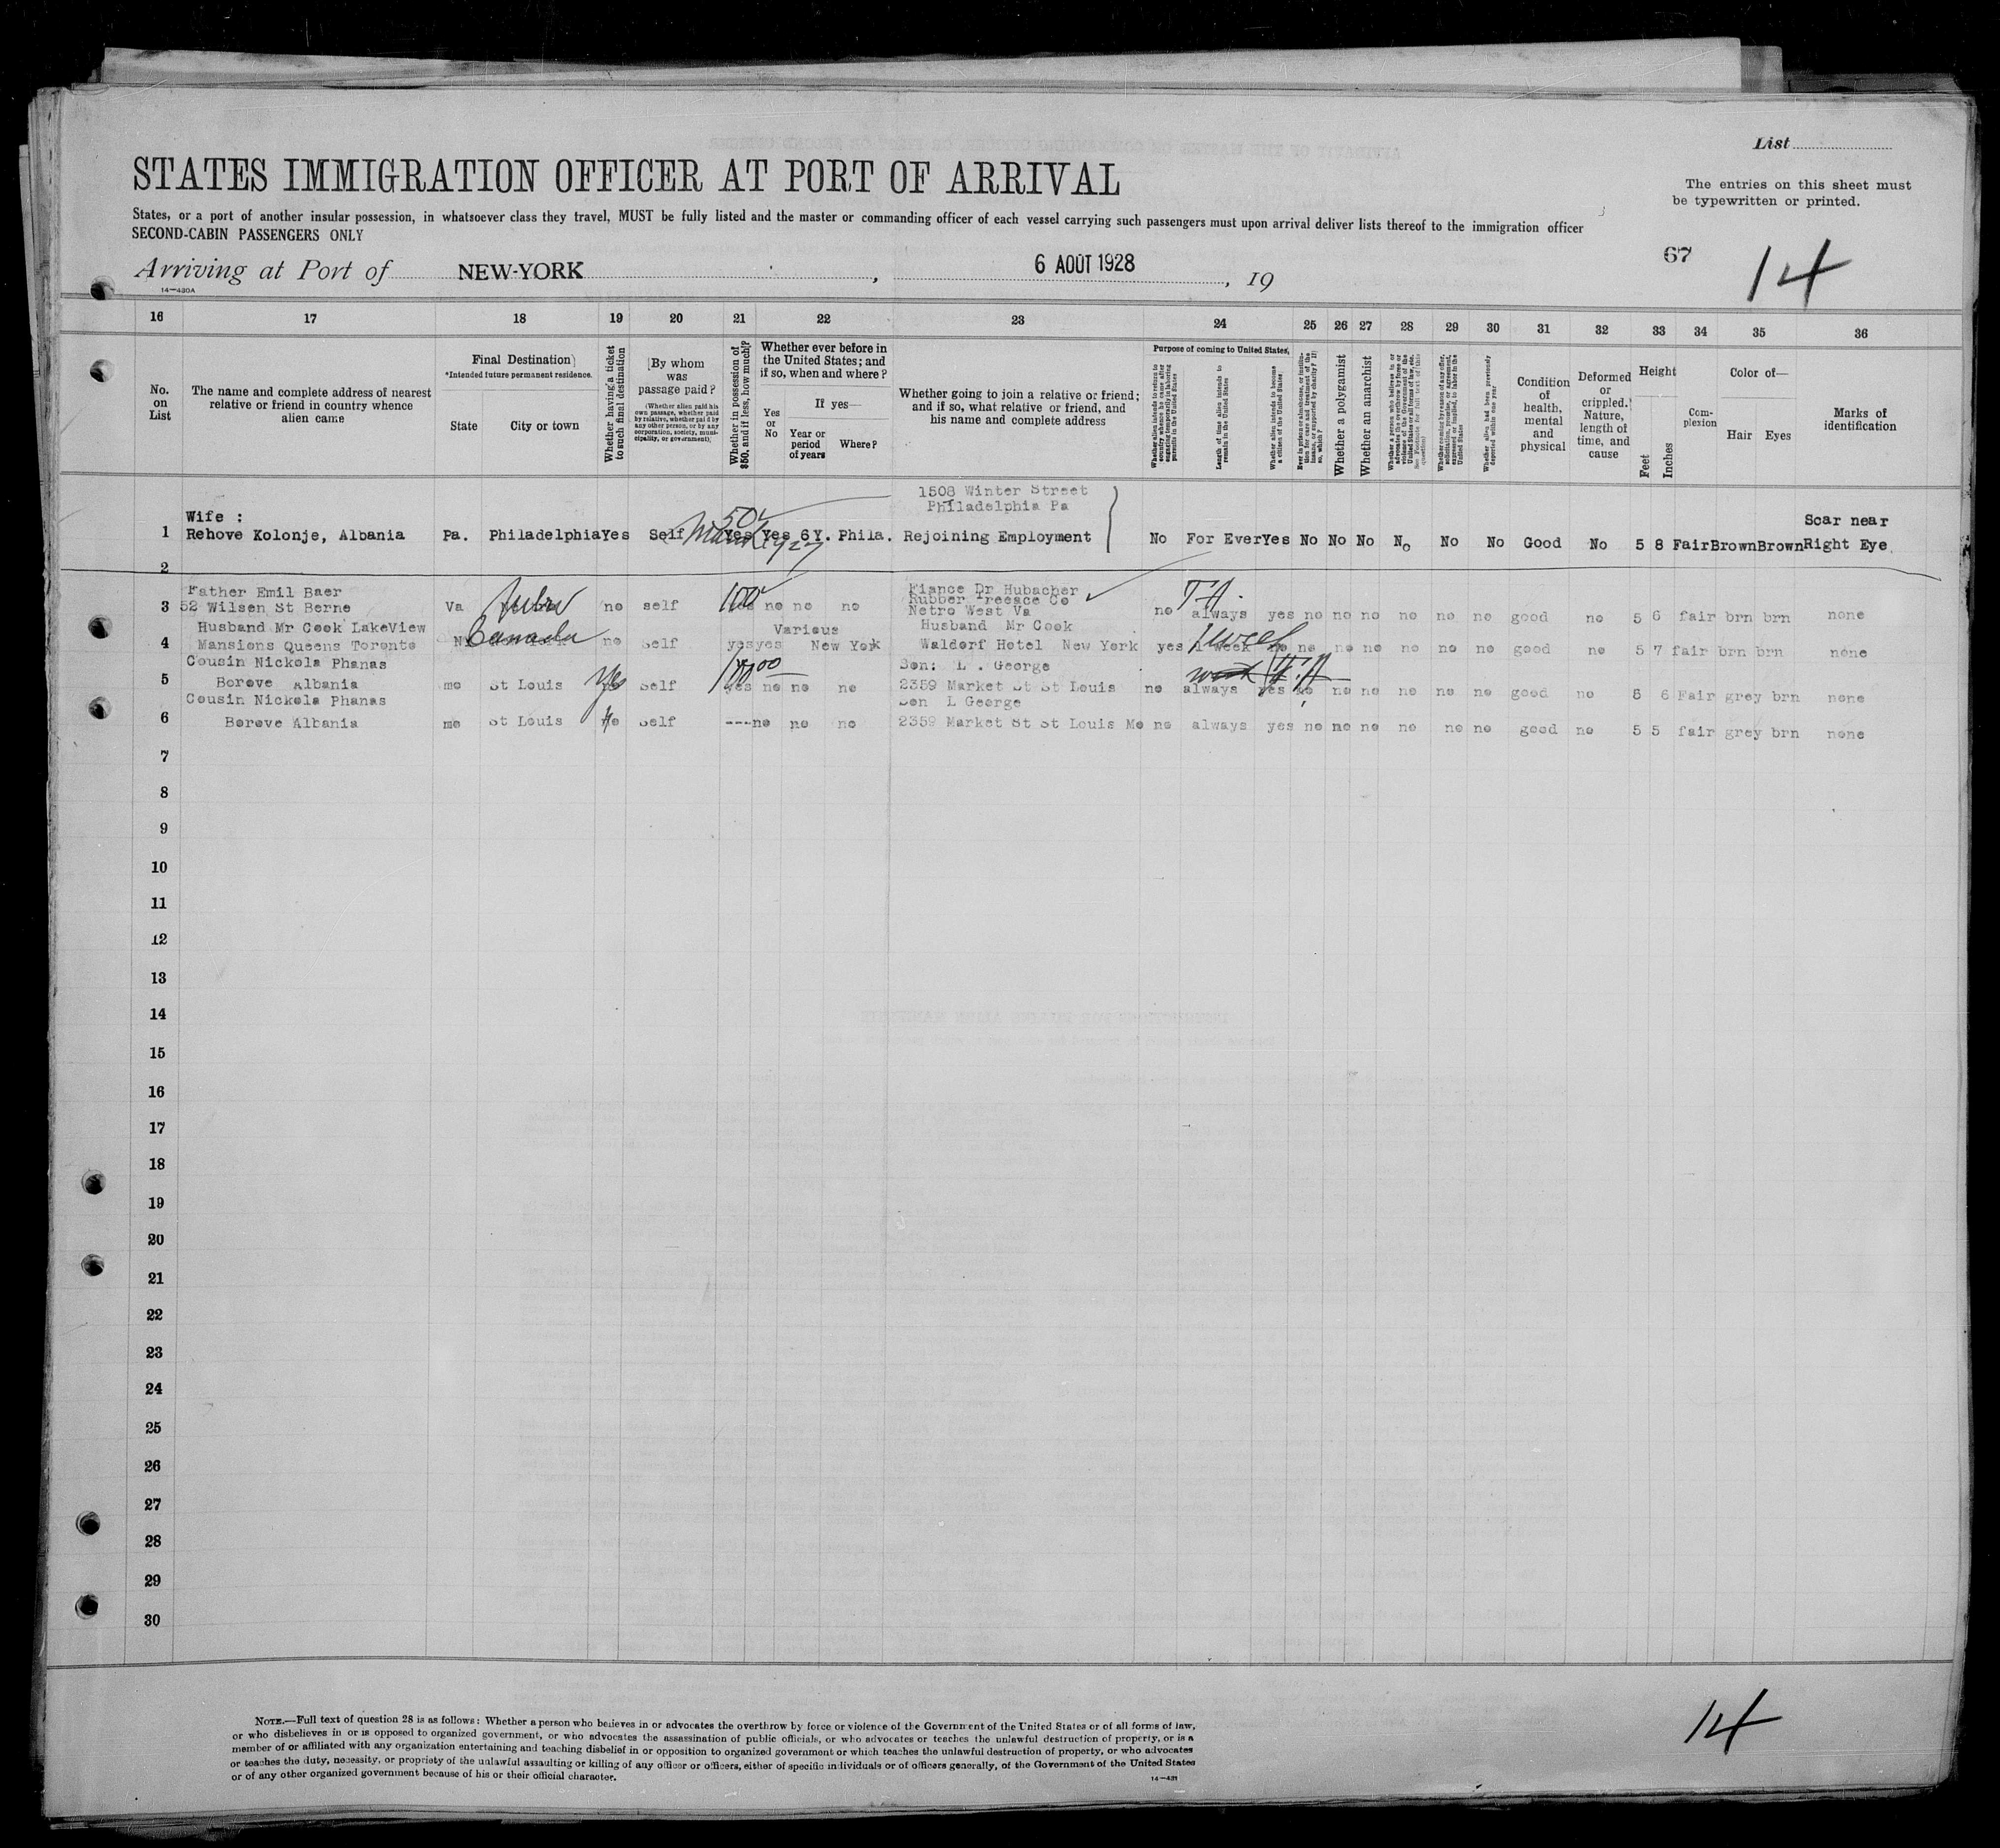 List
STATES IMMIGRATION OFFICER AT PORT OF ARRIVAL
The entries on this sheet must
be typewritten or printed.
States, or a port of another insular possession, in whatsoever class they travel, MUST be fully listed and the master or commanding officer of each vessel carrying such passengers must upon arrival deliver lists thereof to the immigration officer
SECOND-CABIN PASSENGERS ONLY
Arriving at Port of NEW-YORK, 6 AOUT 1928, 19
67 14
14—430A
16 17 18 19 20 21 22 23 24 25 26 27 28 29 30 31 32 33 34 35 36
No. on List
The name and complete address of nearest relative or friend in country whence alien came
Final Destination
*Intended future permanent residence.
State City or town
Whether having a ticket to such final destination
By whom was passage paid?
(Whether alien paid his own passage, whether paid by relative, whether paid by any other person, or by any corporation, society, municipality, or government)
Whether in possession of $50, and if less, how much?
Whether ever before in the United States; and if so, when and where?
Yes or No
If yes—
Year or period of years
Where?
Whether going to join a relative or friend; and if so, what relative or friend, and his name and complete address
Purpose of coming to United States
Length of time alien intends to remain in the United States
Whether alien intends to become a citizen of the United States
Whether a polygamist
Whether an anarchist
Whether alien had been previously deported within one year
Condition of health, mental and physical
Deformed or crippled. Nature, length of time, and cause
Height
Feet Inches
Complexion
Color of—
Hair Eyes
Marks of identification
1508 Winter Street
Philadelphia Pa
1 Wife :
Rehove Kolonje, Albania Pa. Philadelphia Yes Self 50 Yes Yes 6Y. Phila. Rejoining Employment No For Ever Yes No No No No No No Good No 5 8 Fair Brown Brown Scar near Right Eye
2
Father Emil Baer Fiance Dr Hubacher
Rubber Company
3 52 Wilsen St Berne Va no self 100 no no no Netro West Va no always yes no no no no no no good no 5 6 fair brn brn none
Husband Mr Cook LakeView Various Husband Mr Cook
4 Mansions Queens Toronto Canada no self yes yes New York Waldorf Hotel New York yes 1 week no no no no no no no good no 5 7 fair brn brn none
Cousin Nickola Phanas Son: L . George
5 Borove Albania mo St Louis Yes self yes no no no 2359 Market St St Louis no always yes no no no no no no good no 8 6 Fair grey brn none
Cousin Nickola Phanas Son L George
6 Borove Albania mo St Louis self ---no no no 2359 Market St St Louis Mo no always yes no no no no no no good no 5 5 fair grey brn none
7
8
9
10
11
12
13
14
15
16
17
18
19
20
21
22
23
24
25
26
27
28
29
30
14
NOTE.—Full text of question 28 is as follows: Whether a person who believes in or advocates the overthrow by force or violence of the Government of the United States or of all forms of law,
or who disbelieves in or is opposed to organized government, or who advocates the assassination of public officials, or who advocates or teaches the unlawful destruction of property, or is a
member of or affiliated with any organization entertaining and teaching disbelief in or opposition to organized government or which teaches the unlawful destruction of property, or who advocates
or teaches the duty, necessity, or propriety of the unlawful assaulting or killing of any officer or officers, either of specific individuals or of officers generally, of the Government of the United States
or of any other organized government because of his or their official character.
14—431